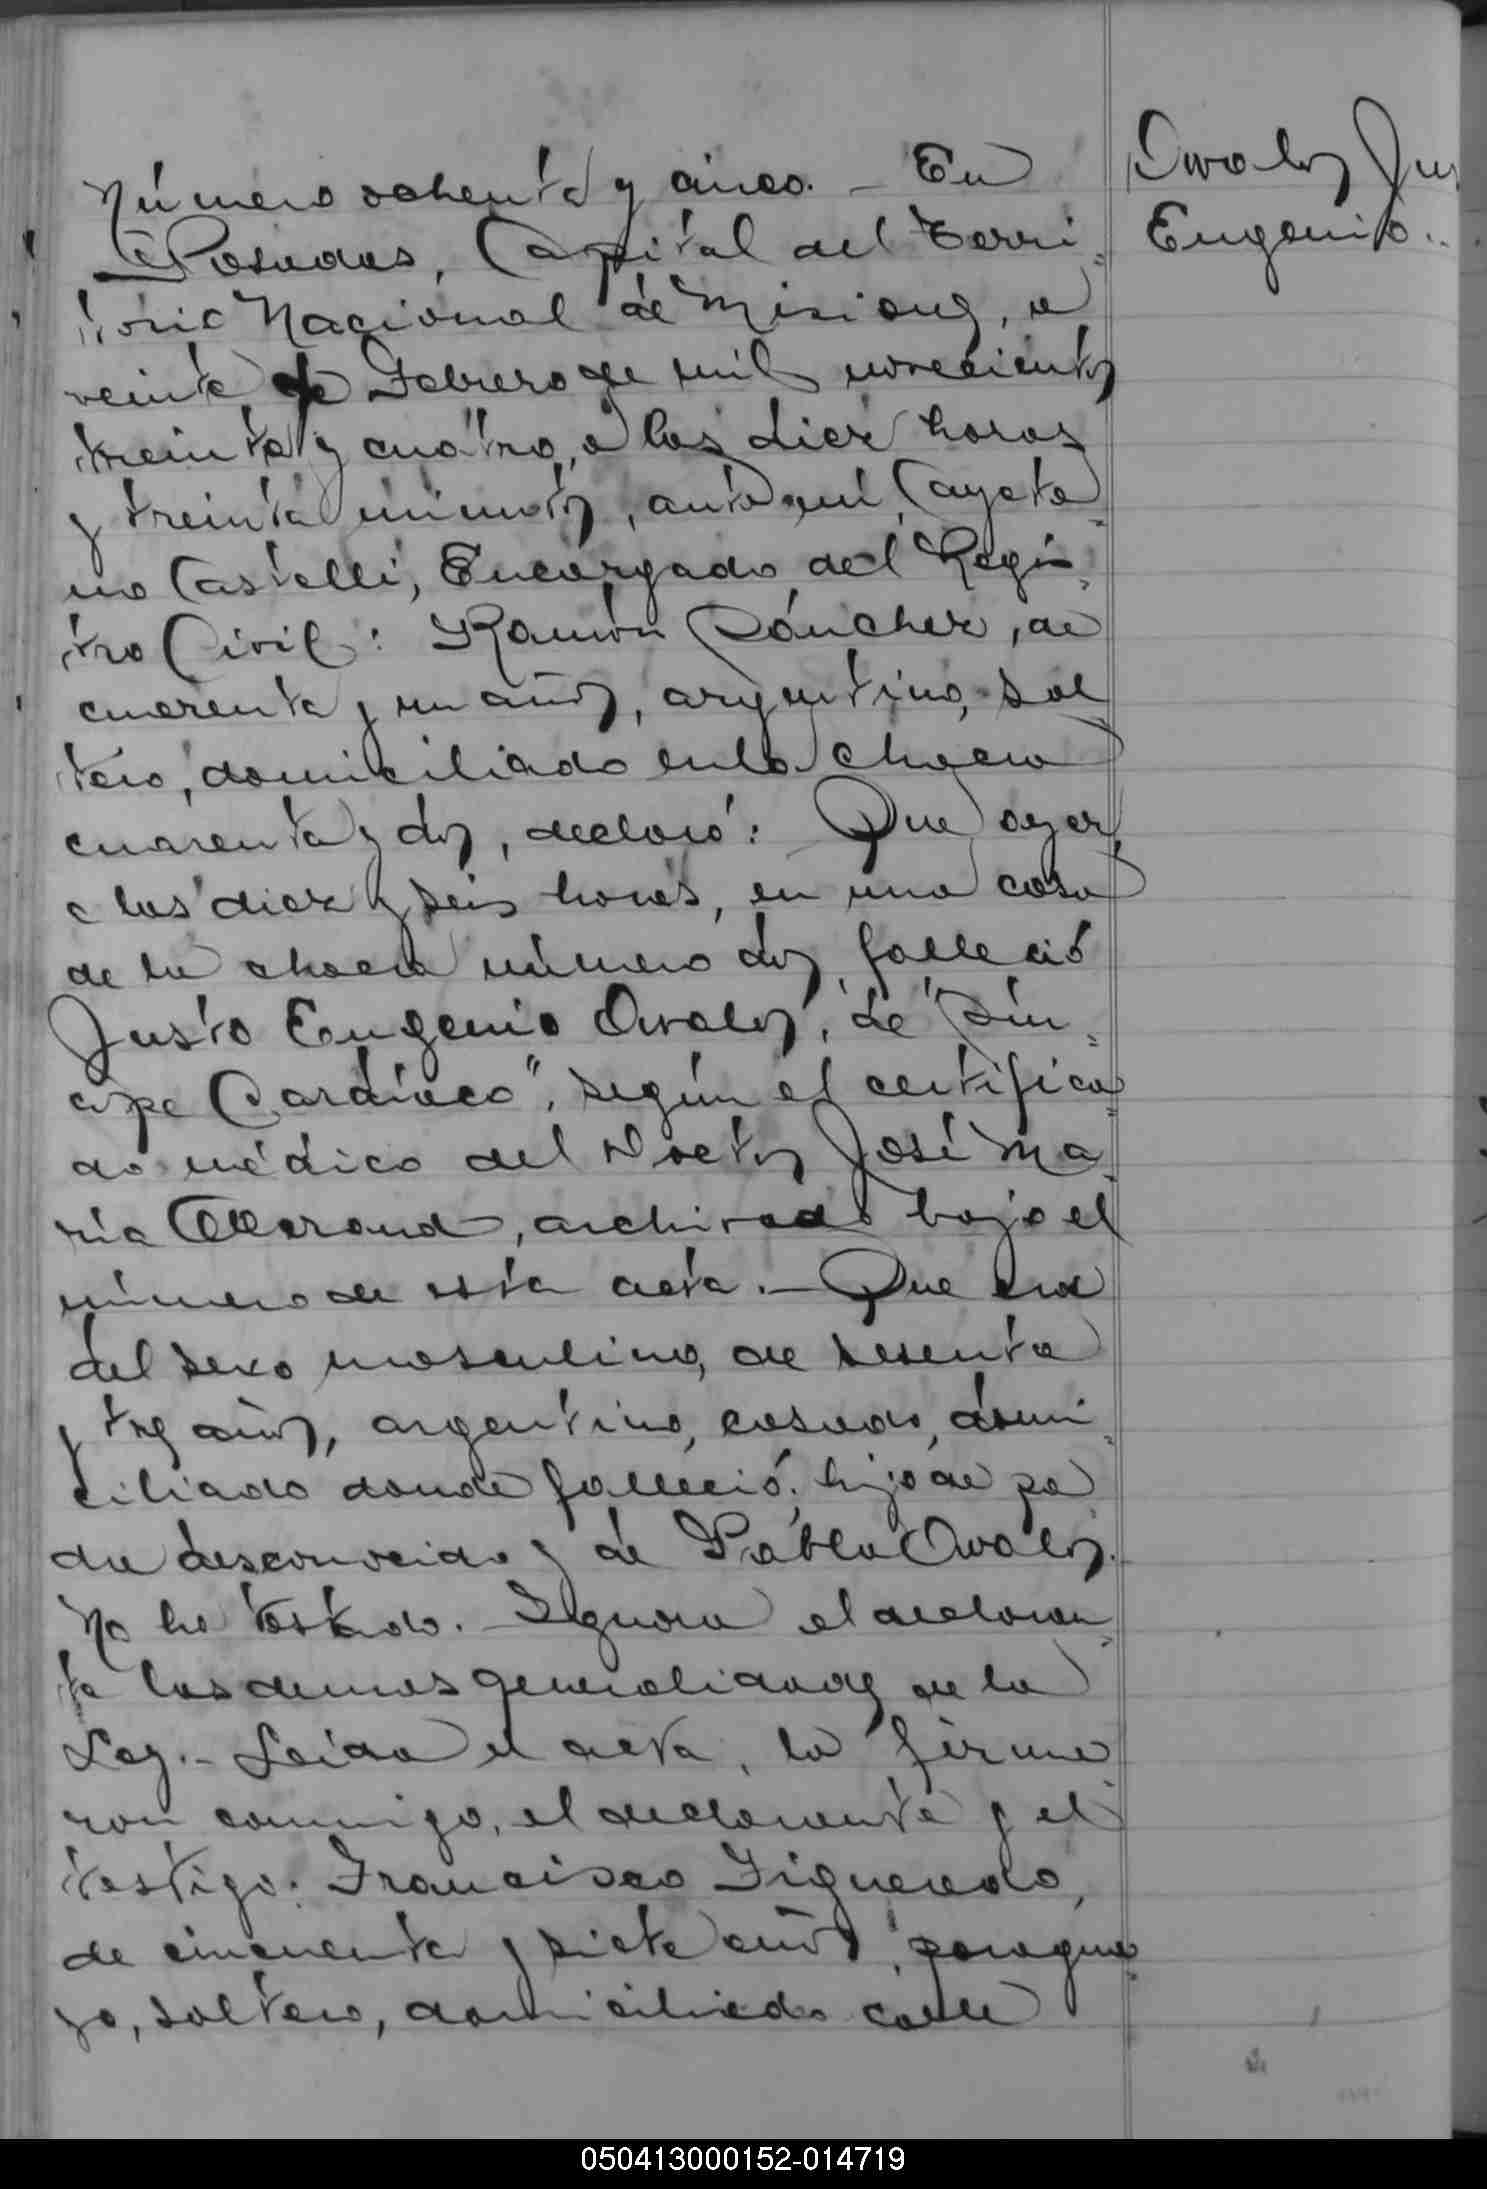 Número ochenta y cinco. - En
Posadas, Capital del Terri=
torio Nacional de Misiones, a
veinte de Febrero de mil novecientos
treinta y cuatro, a las diez horas
y treinta minutos, ante mí, Cayeta=
no Castelli, Encargado del Regis=
tro Civil: Ramón Sánchez, de
cuarenta y un años, argentino, sol
tero, domiciliado en la chacra
cuarenta y dos, declaró: Que ayer,
a las diez y seis horas, en una casa
de la chacra número dos, falleció
Justo Eugenio Ovalos, de "Sín=
cope Cardíaco", según el certifica=
do médico del Doctor José Ma=
ría , archivado bajo el
número de esta acta. - Que era
del sexo masculino, de sesenta
y tres años, argentino, casado, domi=
ciliado donde falleció; hijo de pa
dre desconocido y de Pabla Ovalos.
No ha testado. - Ignora el declaran=
te las demas generalidades de la
Ley. - Leída el acta, la firma
ron conmigo, el declarante y el
testigo: Francisco Figueredo,
de cincuenta y siete años, paragua=
yo, soltero, domiciliado calle
Ovalos Jus
Eugenio..
050413000152-014719